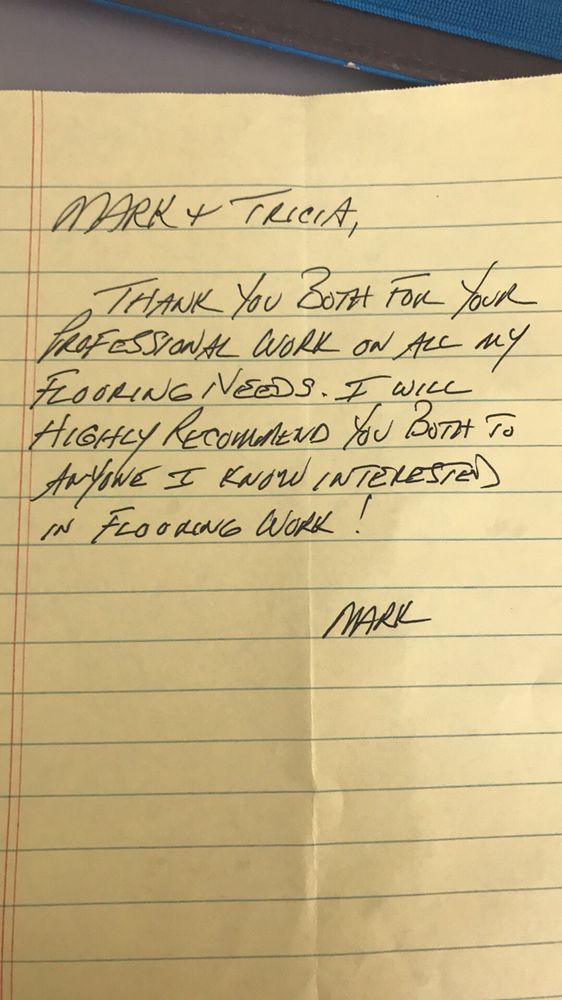 MARK + TRICIA,
THANK YOU BOTH FOR YOUR
PROFESSIONAL WORK ON ALL MY
FLOORING NEEDS. I WILL
HIGHLY RECOMMEND YOU BOTH TO
ANYONE I KNOW INTERESTED
IN FLOORING WORK!
MARK